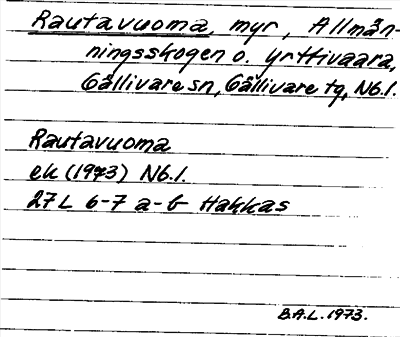 Rautavuoma, myr, Allmän-
ningsskogen o. Yrttivaara,
Gällivare sn, Gällivare tg, Nb.l.
Rautavuoma
ek (1973) Nb.l.
27L 6-7 a-b Hakkas
B.A.L. 1973.